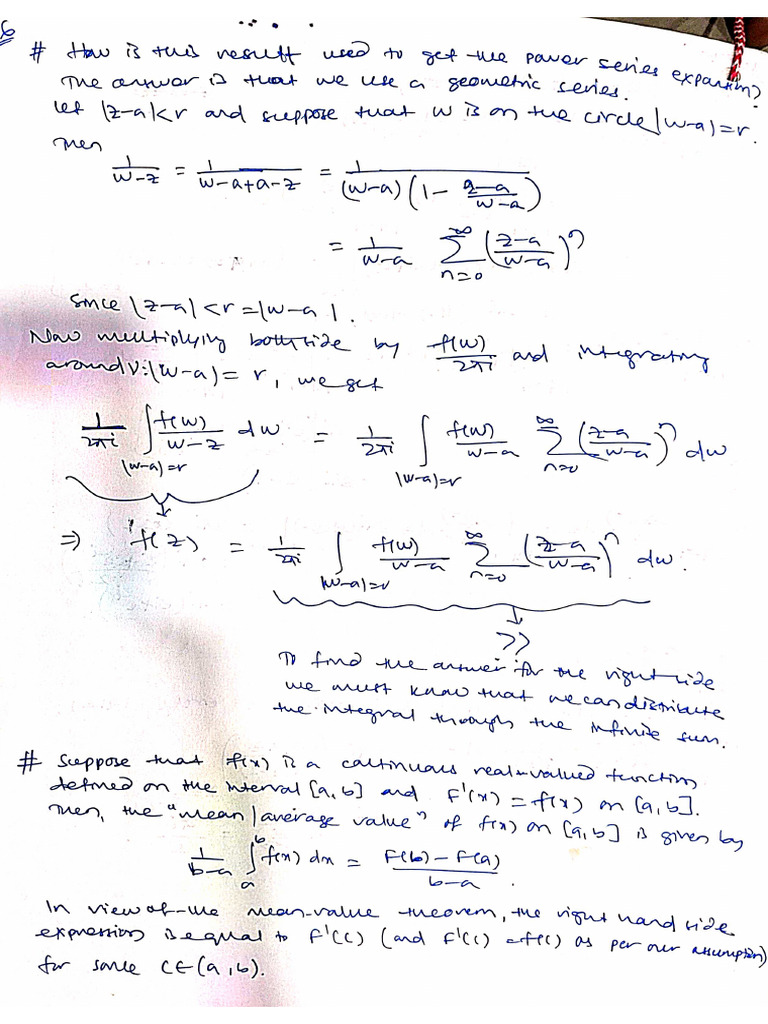 6
# How is this result used to get the power series expansion?
The answer is that we use a geometric series.
Let |z-a|<r and suppose that w is on the circle |w-a|=r.
Then
1/(w-z) = 1/(w-a+a-z) = 1/((w-a)(1 - (z-a)/(w-a)))
= 1/(w-a) ∑_{n=0}^{∞} ((z-a)/(w-a))^n
Since |z-a|<r=|w-a|.
Now multiplying both side by f(w)/2πi and integrating
around γ:|w-a|=r, we get
1/2πi ∫_{|w-a|=r} f(w)/(w-z) dw = 1/2πi ∫_{|w-a|=r} f(w)/(w-a) ∑_{n=0}^{∞} ((z-a)/(w-a))^n dw
⇒ f(z) = 1/2πi ∫_{|w-a|=r} f(w)/(w-a) ∑_{n=0}^{∞} ((z-a)/(w-a))^n dw.
??
To find the answer for the right side
we must know that we can distribute
the integral through the infinite sum.
# Suppose that f(x) is a continuous real-valued function
defined on the interval [a,b] and F'(x) = f(x) on [a,b].
Then, the "mean/average value" of f(x) on [a,b] is given by
1/(b-a) ∫_a^b f(x) dx = (F(b)-F(a))/(b-a).
In view of the mean-value theorem, the right hand side
expression is equal to F'(c) (and F'(c) = f(c) as per our assumption)
for some c∈(a,b).